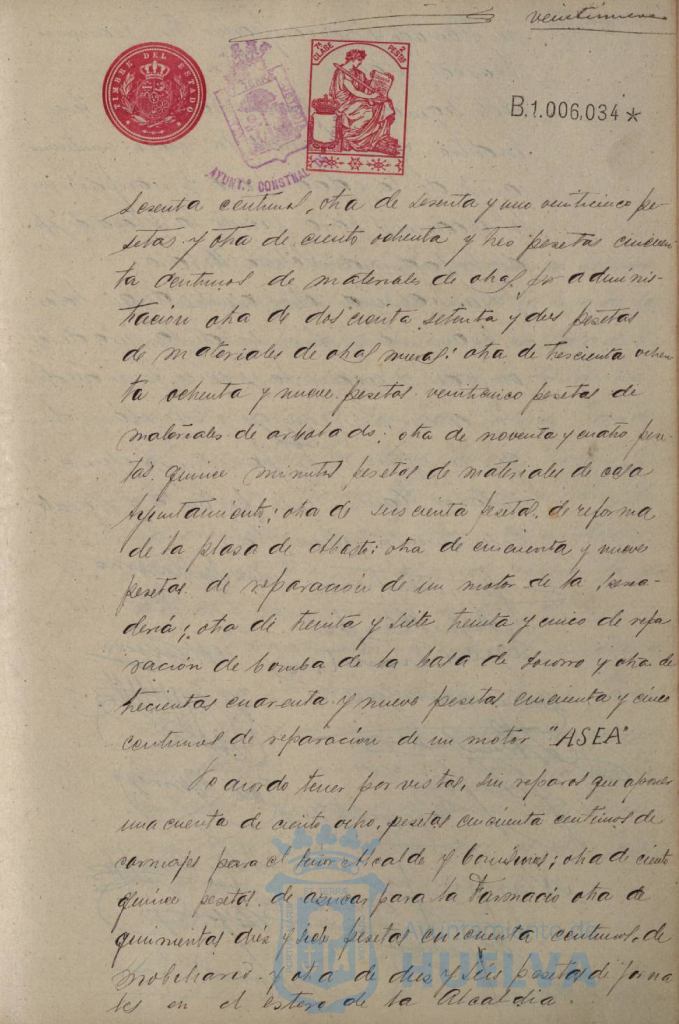 veintinueve
TIMBRE DEL ESTADO
7ª CLASE 2 PESETAS
B.1.006,034 *
AYUNTº CONSTNAL
sesenta centimos, otra de sesenta y uno veinticinco pe-
setas y otra de ciento ochenta y tres pesetas cincuen-
ta centimos de materiales de obras por adminis-
tración otra de doscienta setenta y dos pesetas
de materiales de obras otra de trescienta ochen
ta ochenta y nueve pesetas veinticinco pesetas de
materiales de arbolado; otra de noventa y cuatro pese
tas quince minutos pesetas de materiales de casa
Ayuntamiento; otra de seiscienta pesetas de reforma
de la plaza de Abasto; otra de cincuenta y nueve
pesetas de reparación de un motor de la pesca-
deria; otra de treinta y siete treinta y cinco de repa
ración de bomba de la Casa de Socorro y otra de
trecientas cuarenta y nueve pesetas cincuenta y cinco
centimos de reparación de un motor "ASEA"
Se acordo tener por vistas, sin reparos que oponer
una cuenta de ciento ocho pesetas cincuenta centimos de
carruajes para el Señor Alcalde y Comisiones; otra de ciento
quince pesetas de azucar para la Farmacia otra de
quinientas diez y siete pesetas cincuenta centimos de
mobiliario y otra de diez y seis pesetas de jorna
les en el estero de la Alcaldia.
Ayuntamiento de
HUELVA